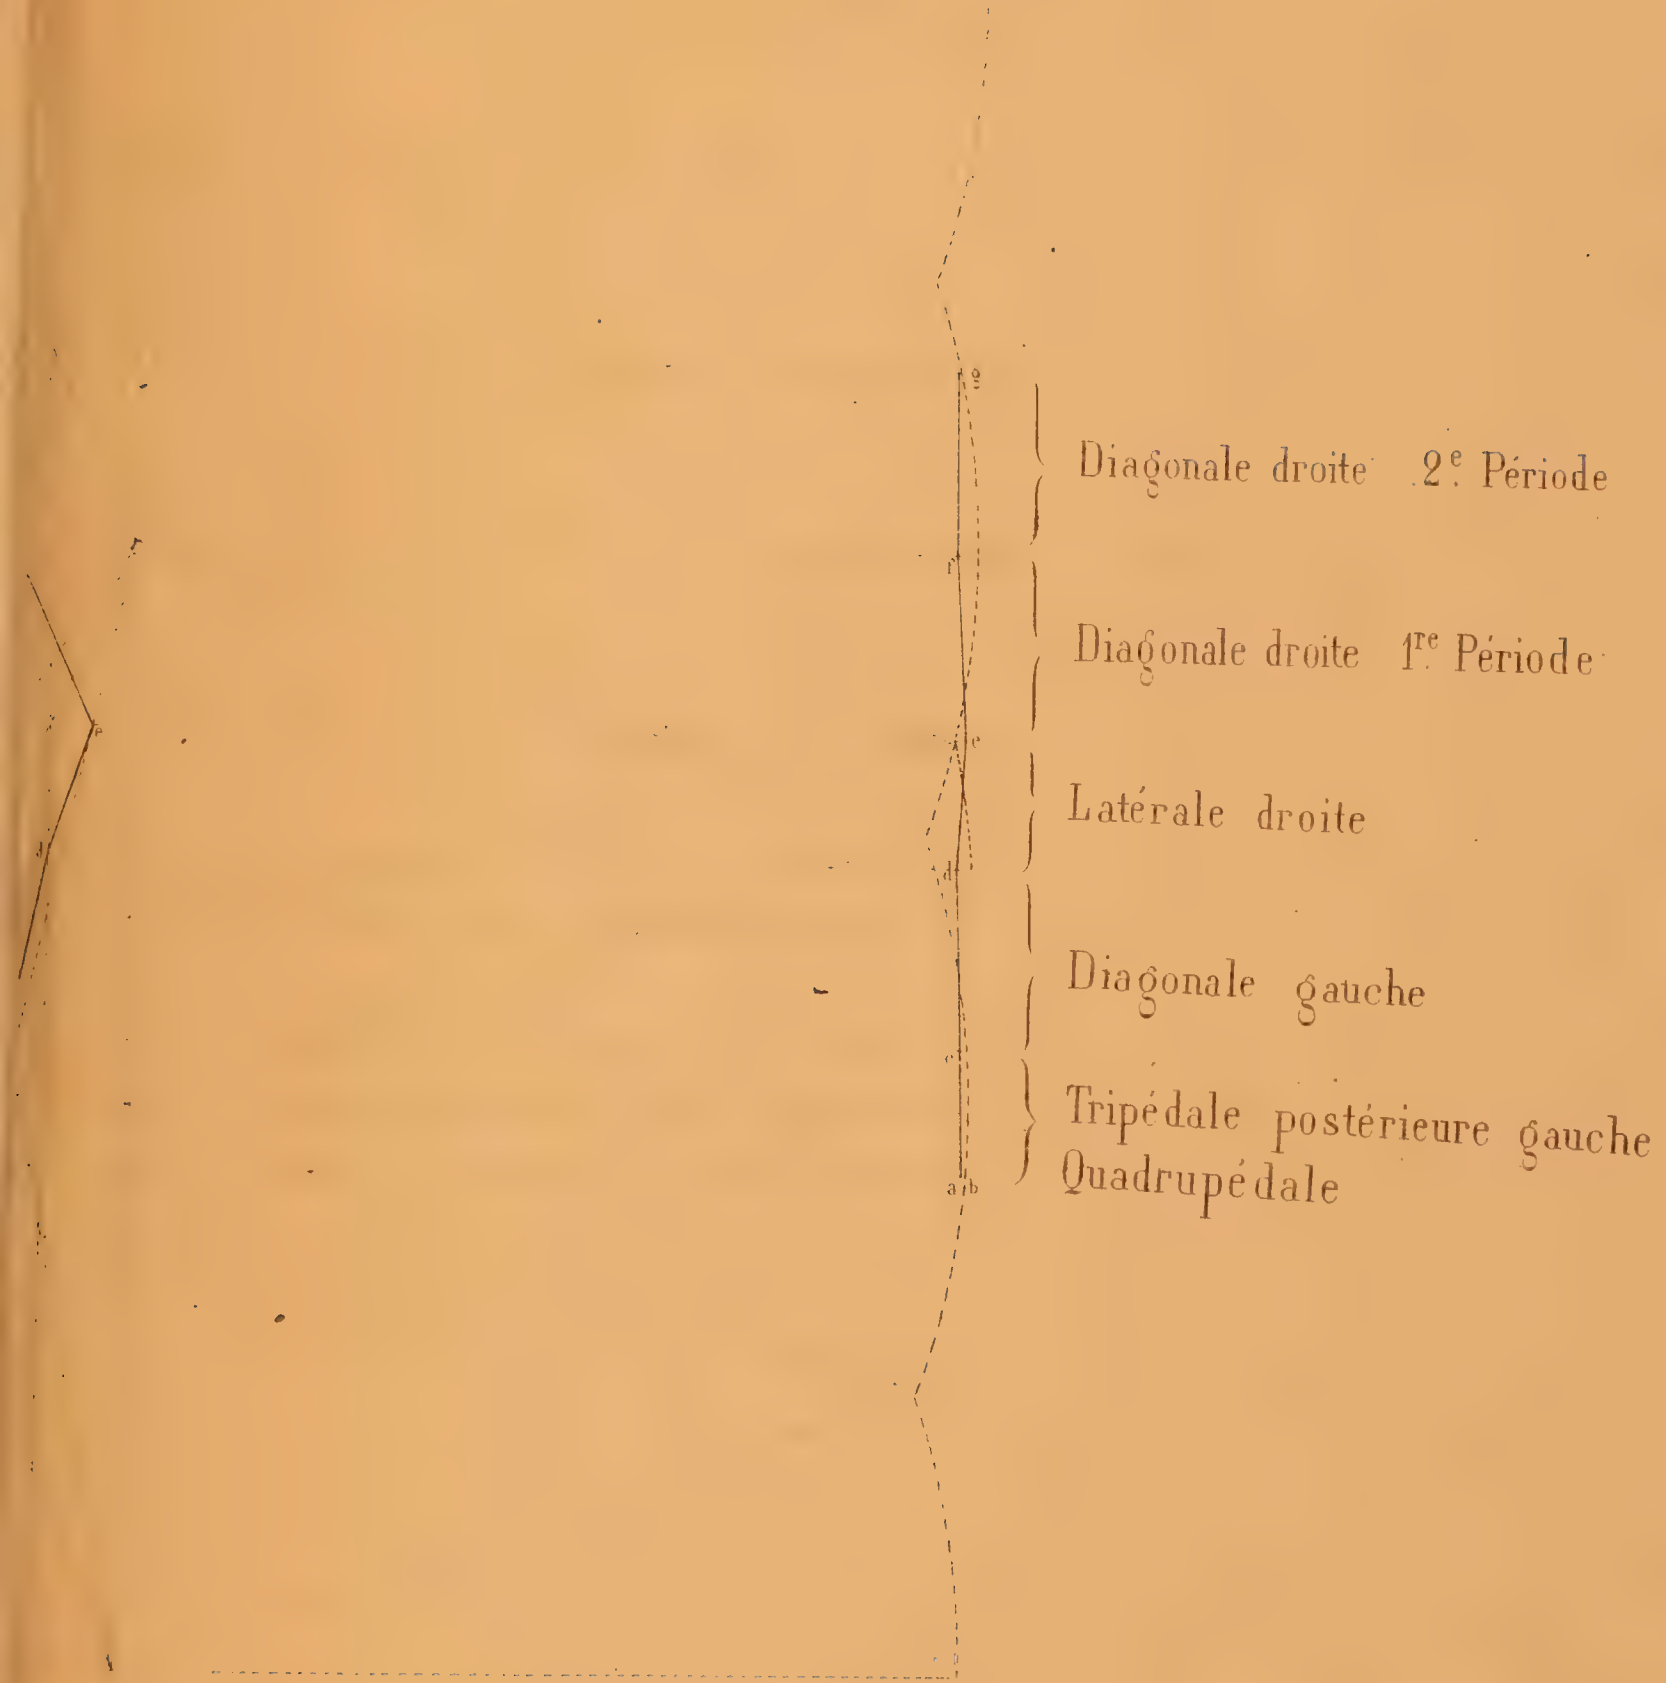 g
Diagonale droite 2e Période
f
Diagonale droite 1re Période
e
e
Latérale droite
d
d
Diagonale gauche
c
Tripédale postérieure gauche
Quadrupédale
a b